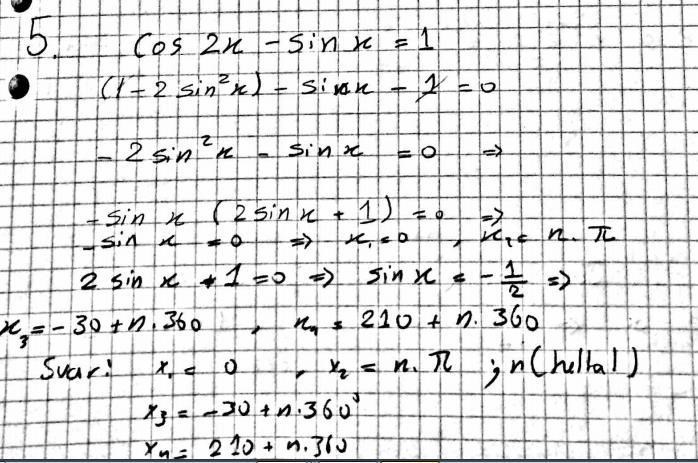 5. cos 2x - sin x = 1
(1 - 2 sin²x) - sin x - 1 = 0
- 2 sin²x - sin x = 0 ⇒
- sin x (2 sin x + 1) = 0 ⇒
- sin x = 0 ⇒ x₁ = 0 , x₂ = n. π
2 sin x + 1 = 0 ⇒ sin x = - 1/2 ⇒
x₃ = -30 + n. 360 , x₄ = 210 + n. 360
Svar: x₁ = 0 , x₂ = n. π ; n (heltal)
x₃ = -30 + n. 360°
x₄ = 210 + n. 360